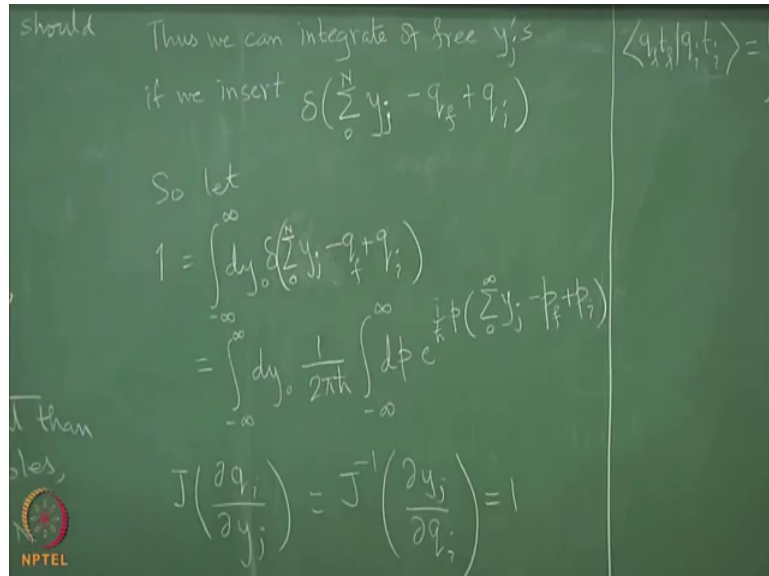 should
Thus we can integrate of free y_j's
if we insert δ(∑_0^N y_j - q_f + q_i)
So let
1 = ∫_{-∞}^{∞} dy_0 δ(∑_0^N y_j - q_f + q_i)
= ∫_{-∞}^{∞} dy_0 1/(2πħ) ∫_{-∞}^{∞} dp e^{i/ħ p(∑_0^∞ y_j - p_f + p_i)}
J(∂q_i/∂y_j) = J^{-1}(∂y_j/∂q_i) = 1
⟨q_f t_f | q_i t_i⟩ =
than
NPTEL